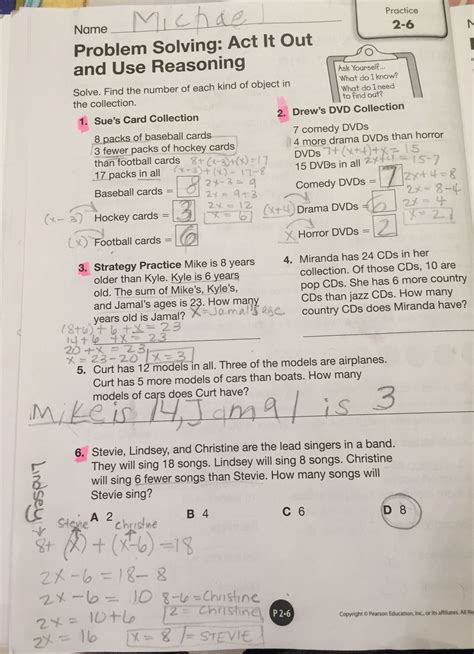 Name Michael
Practice
2-6
Problem Solving: Act It Out
and Use Reasoning
Ask Yourself...
What do I know?
What do I need
to find out?
Solve. Find the number of each kind of object in
the collection.
1. Sue's Card Collection
8 packs of baseball cards
3 fewer packs of hockey cards
than football cards 8+(x-3)+(x)=17
17 packs in all (x-3)+(x)=17-8
2x-3=9
Baseball cards = 8
2x=9+3
2x=12
(x-3) Hockey cards = 3
x=6
(x) Football cards = 6
2. Drew's DVD Collection
7 comedy DVDs
4 more drama DVDs than horror
DVDs 7+(x+4)+x=15
15 DVDs in all 2x+4=15-7
Comedy DVDs = 7
2x+4=8
2x=8-4
(x+4) Drama DVDs = 6
2x=4
x=2
x Horror DVDs = 2
3. Strategy Practice Mike is 8 years
older than Kyle. Kyle is 6 years
old. The sum of Mike's, Kyle's,
and Jamal's ages is 23. How many
years old is Jamal? x=Jamal's age
(8+6)+6+x=23
14+6+x=23
20+x=23
x=23-20 x=3
4. Miranda has 24 CDs in her
collection. Of those CDs, 10 are
pop CDs. She has 6 more country
CDs than jazz CDs. How many
country CDs does Miranda have?
5. Curt has 12 models in all. Three of the models are airplanes.
Curt has 5 more models of cars than boats. How many
models of cars does Curt have?
Mike is 14, Jamal is 3
6. Stevie, Lindsey, and Christine are the lead singers in a band.
They will sing 18 songs. Lindsey will sing 8 songs. Christine
will sing 6 fewer songs than Stevie. How many songs will
Stevie sing?
A 2
B 4
C 6
D 8
Lindsey
Stevie
christine
8+(x)+(x-6)=18
2x-6=18-8
2x-6=10
2x=10+6
2x=16
8-6=Christine
2=Christine
x=8=STEVIE
P 2-6
Copyright © Pearson Education, Inc., or its affiliates. All Re